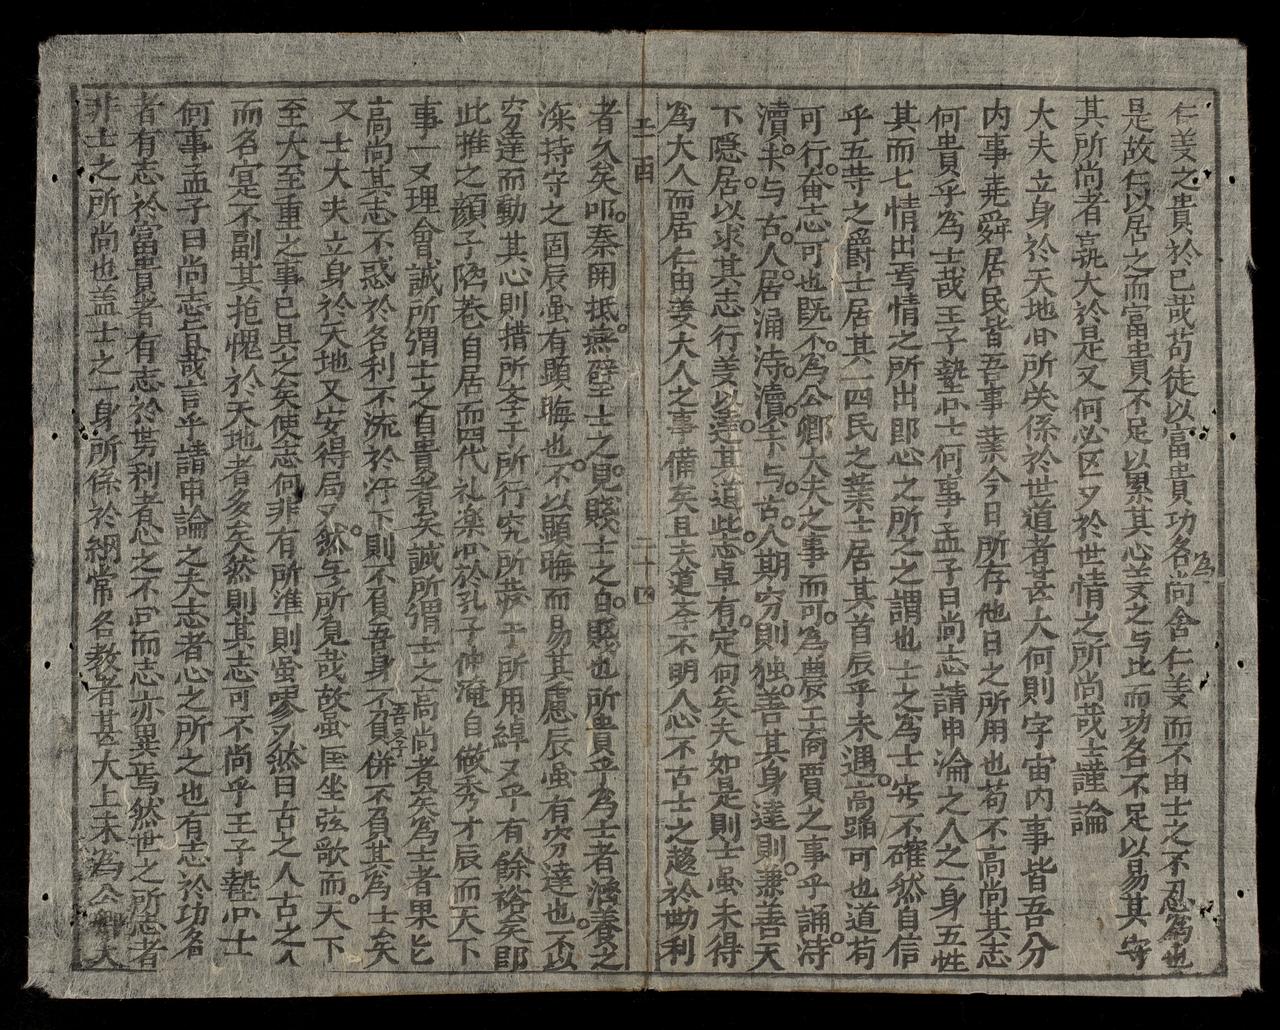 仁義之貴於已哉苟徒以富貴功名尚舍仁義而不由士之不忍為也
是故仁以居之而富貴不足以累其心義之与此而功名不足以易其守
其所尚者孰大於是又何必区々於世情之所尚哉士謹論
大夫立身於天地间所关係於世道者甚大何則字宙内事皆吾分
内事堯舜居民皆吾事業今日所存他日之所用也苟不高尚其志
何貴乎為士哉王子墊问士何事孟子曰尚志請申論之人之一身五性
其而七情出焉情之所出即心之所之之謂也士之為士宁不確然自信
乎五等之爵士居其一四民之業士居其首辰乎未遇高蹈可也道苟
可行奋志可也既不為公卿大夫之事而可為農工商賈之事乎誦诗
讀书与古人居涌诗讀书与古人期穷則独善其身達則兼善天
下隠居以求其志行義以達其道些志卓有定向矣夫如是則士虽未得
為大人而居仁由義大人之事備矣且夫道李不明人心不古士之趍於勢利
王函
二十四
者久矣叩秦開抵燕壁士之見賤士之自賤也所貴乎為士者涵養之
深持守之固辰虽有顕晦也不以顕晦而易其慮辰虽有穷達也不以
穷達而動其心則措所李于所行究所薀于所用綽又乎有餘裕矣即
此推之顔子陋巷自居而四代礼楽问於孔子仲淹自做秀才辰而天下
事一又理會誠所謂士之自貴者矣誠所謂士之高尚者矣為士者果能
高尚其志不惑於名利不流於汙下則不負吾身不負併不負其為士矣
又士大夫立身於天地又安得局又然午所見哉故虽匡坐弦歌而天下
至大至重之事已具之矣使志何非有所准則虽嘐又然曰古之人古之人
而名寔不副其抱愧於天地者多矣然則其志可不尚乎王子墊问士
何事孟子曰尚志旨哉言乎請申論之夫志者心之所之也有志於功名
者有志於富貴者有志於势利者心之不同而志亦異焉然世之所志者
非士之所尚也盖士之一身所係於綱常名教者甚大上未為公卿大